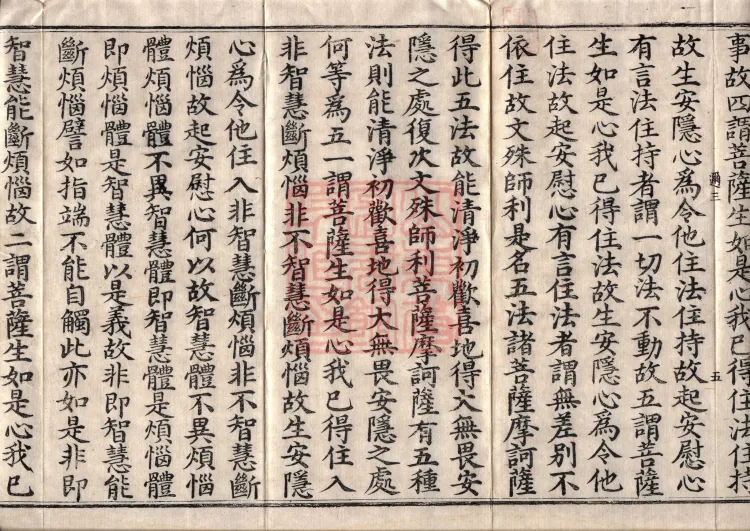 事故四謂菩薩生如是心我已得住法住持
過三
五
故生安隱心為令他住法住持故起安慰心
有言法住持者謂一切法不動故五謂菩薩
生如是心我已得住法故生安隱心為令他
住法故起安慰心有言住法者謂無差別不
依住故文殊師利是名五法諸菩薩摩訶薩
得此五法故能清淨初歡喜地得大無畏安
隱之處復次文殊師利菩薩摩訶薩有五種
法則能清淨初歡喜地得大無畏安隱之處
何等為五一謂菩薩生如是心我已得住入
非智慧斷煩惱非不智慧斷煩惱故生安隱
心為令他住入非智慧斷煩惱非不智慧斷
煩惱故起安慰心何以故智慧體不異煩惱
體煩惱體不異智慧體即智慧體是煩惱體
即煩惱體是智慧體以是義故非即智慧能
斷煩惱譬如指端不能自觸此亦如是非即
智慧能斷煩惱故二謂菩薩生如是心我已